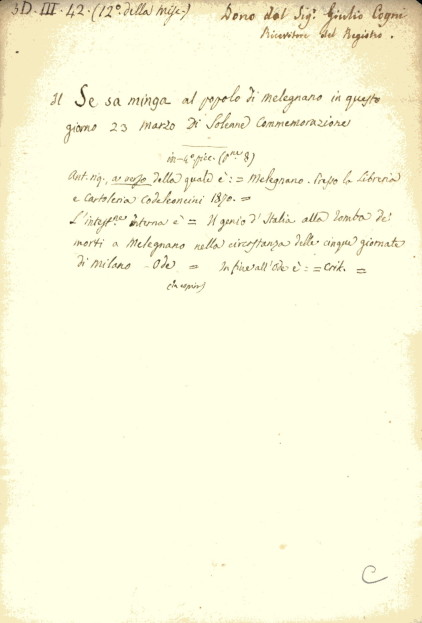 3D. III. 42. (12º della Misc.)
Dono del Sig. Giulio Cogni
Ricevitore del Registro.
Il Se sa minga al popolo di Melegnano in questo
giorno 23 Marzo Di Solenne Commemorazione
in-4º picc. (pne 8)
Ant. rig., a verso della quale è: = Melegnano. Presso la Libreria
e Cartoleria Codeleoncini 1870. =
L'intestne interna è = Il genio d'Italia alla tomba de'
morti a Melegnano nella circostanza delle cinque giornate
di Milano - Ode = In fine all'Ode è: = Crik. =
C